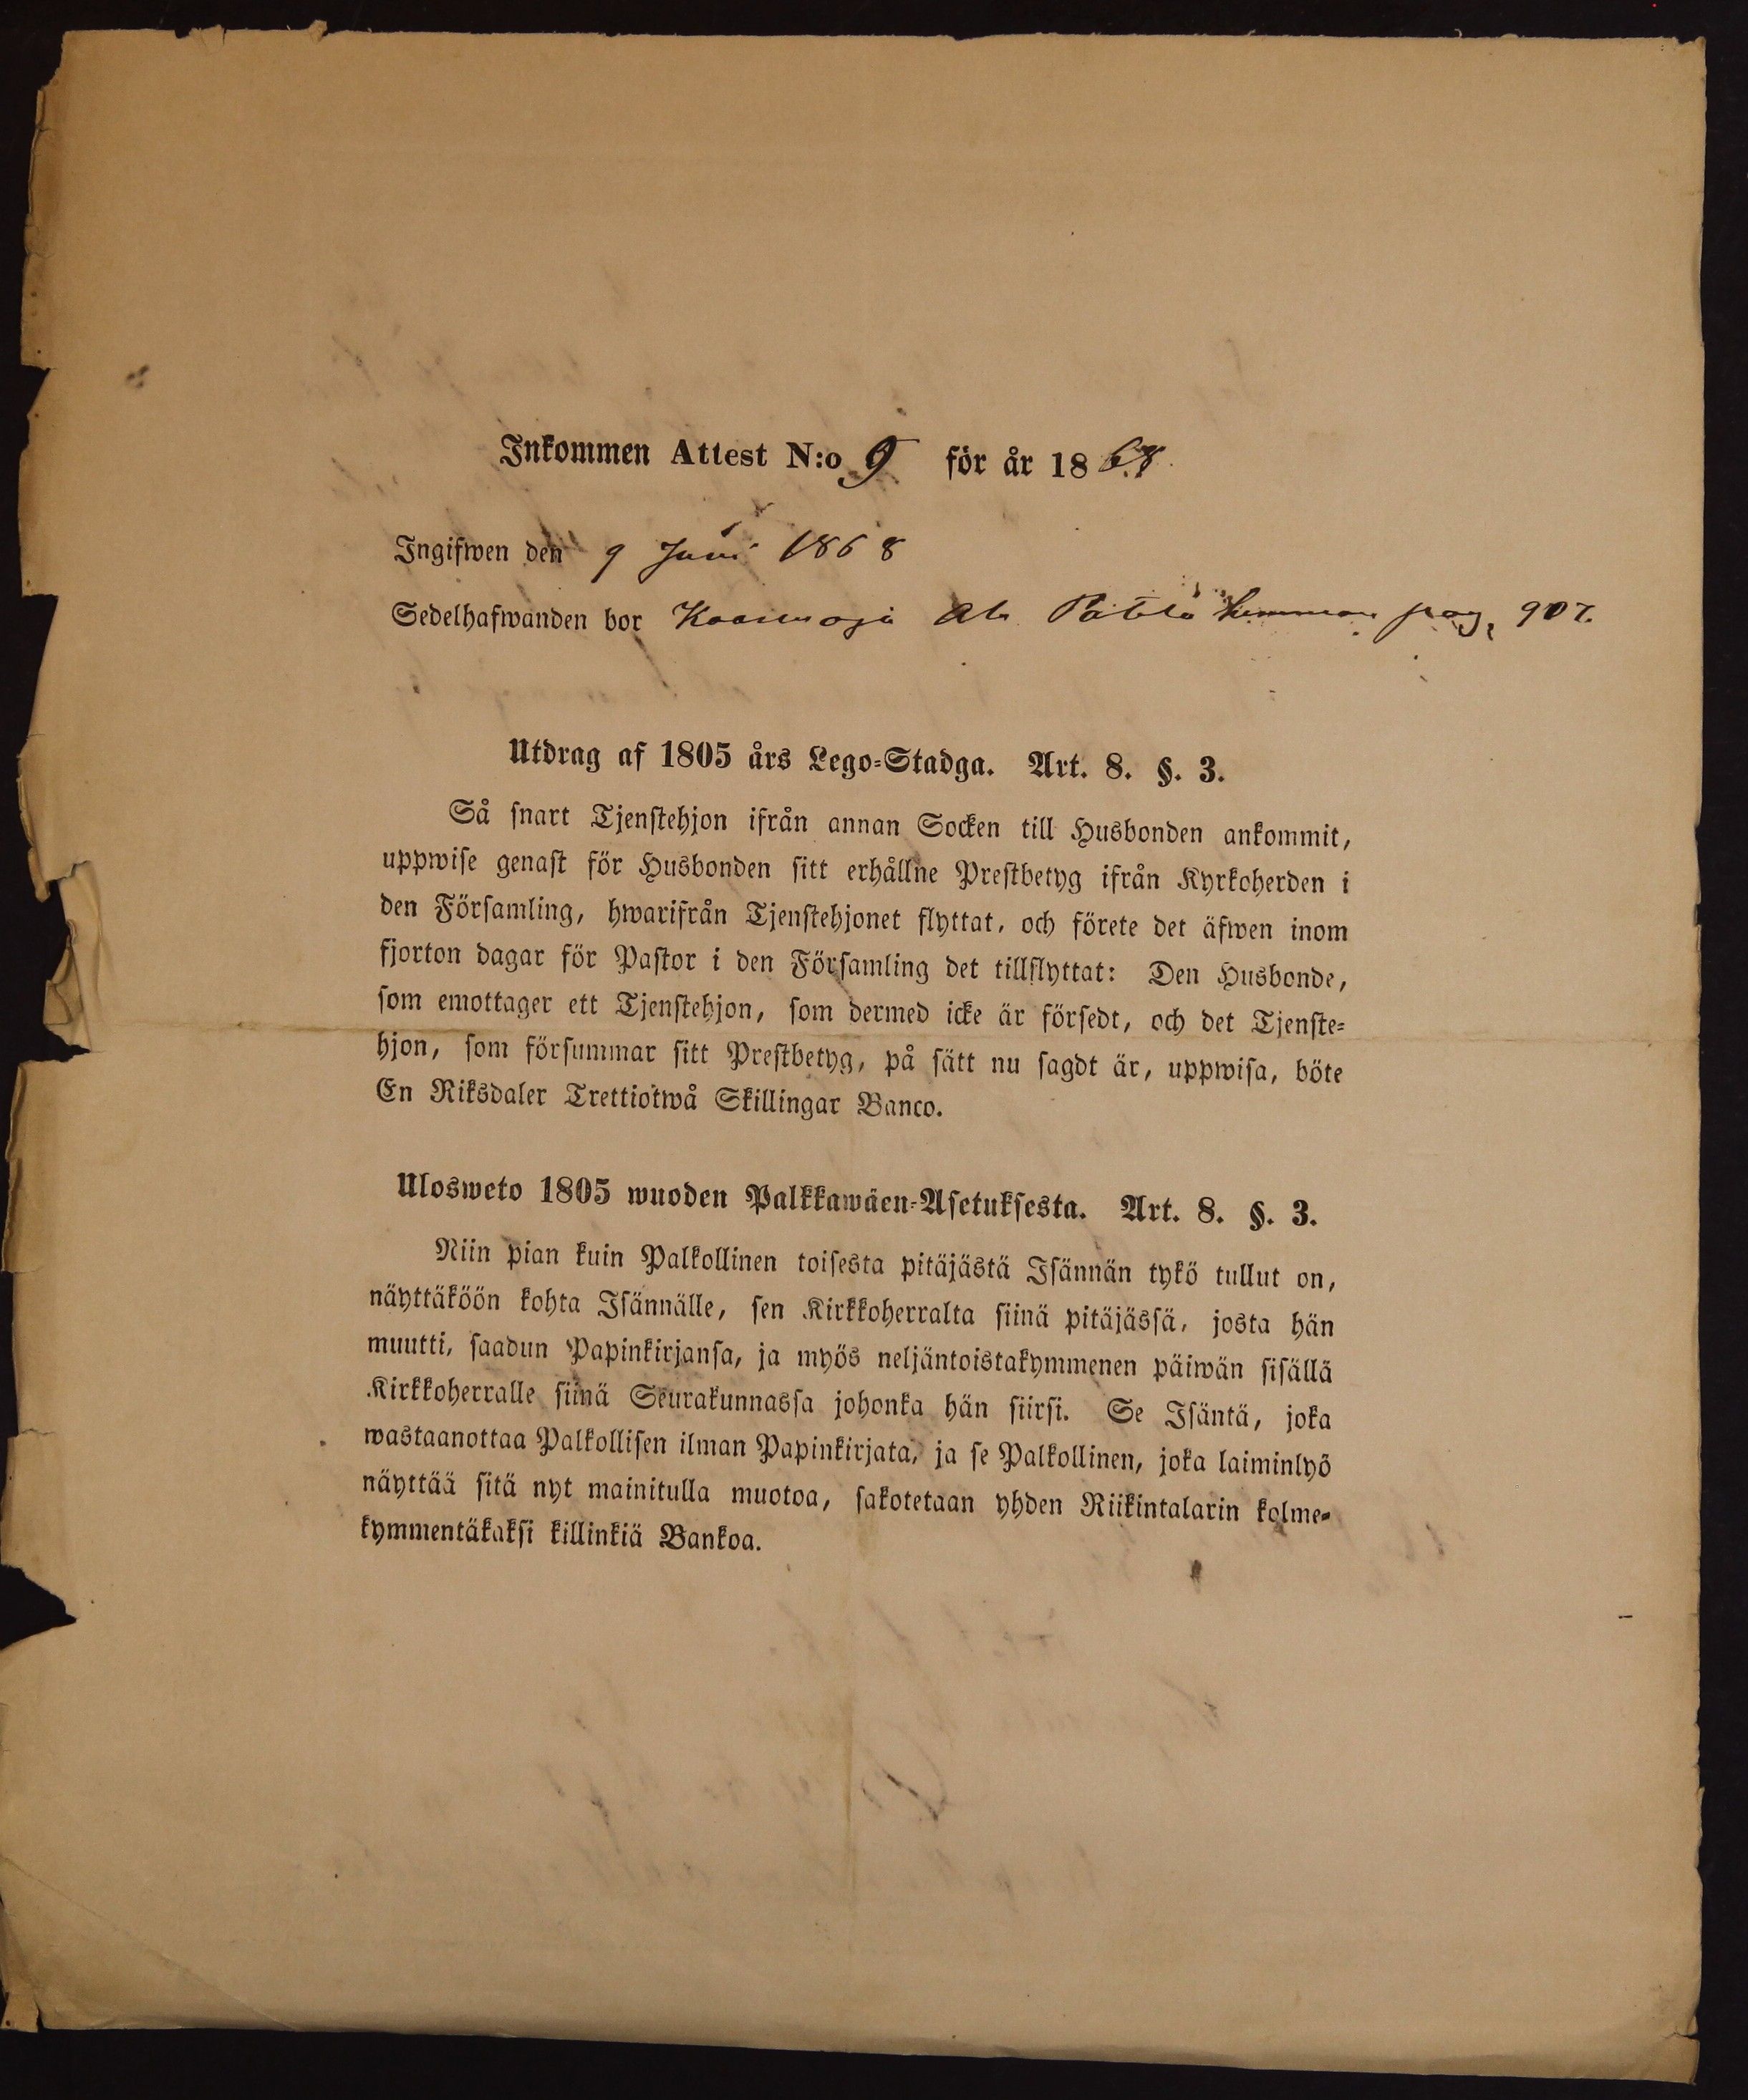 Inkommen Attest N:o 9 för år 1868
Ingifwen den 9 Juni 1868
Sedelhafwanden bor hemman pag. 907.
Utdrag af 1805 års Lego-Stadga. Art. 8. §. 3.
Så snart Tjenstehjon ifrån annan Socken till Husbonden ankommit,
uppwise genast för Husbonden sitt erhållne Prestbetyg ifrån Kyrkoherden i
den Församling, hwarifrån Tjenstehjonet flyttat, och förete det äfwen inom
fjorton dagar för Pastor i den Församling det tillflyttat: Den Husbonde,
som emottager ett Tjenstehjon, som dermed icke är försedt, och det Tjenste-
hjon, som försummar sitt Prestbetyg, på sätt nu sagdt är, uppwisa, böte
En Riksdaler Trettiotwå Skillingar Banco.
Ulosweto 1805 wuoden Palkkawäen-Asetuksesta. Art. 8. §. 3.
Niin pian kuin Palkollinen toisesta pitäjästä Isännän tykö tullut on,
näyttäköön kohta Isännälle, sen Kirkkoherralta siinä pitäjässä, josta hän
muutti, saadun Papinkirjansa, ja myös neljäntoistakymmenen päiwän sisällä
Kirkkoherralle siinä Seurakunnassa johonka hän siirsi. Se Isäntä, joka
wastaanottaa Palkollisen ilman Papinkirjata, ja se Palkollinen, joka laiminlyö
näyttää sitä nyt mainitulla muotoa, sakotetaan yhden Riikintalarin kolme-
kymmentäkaksi killinkiä Bankoa.